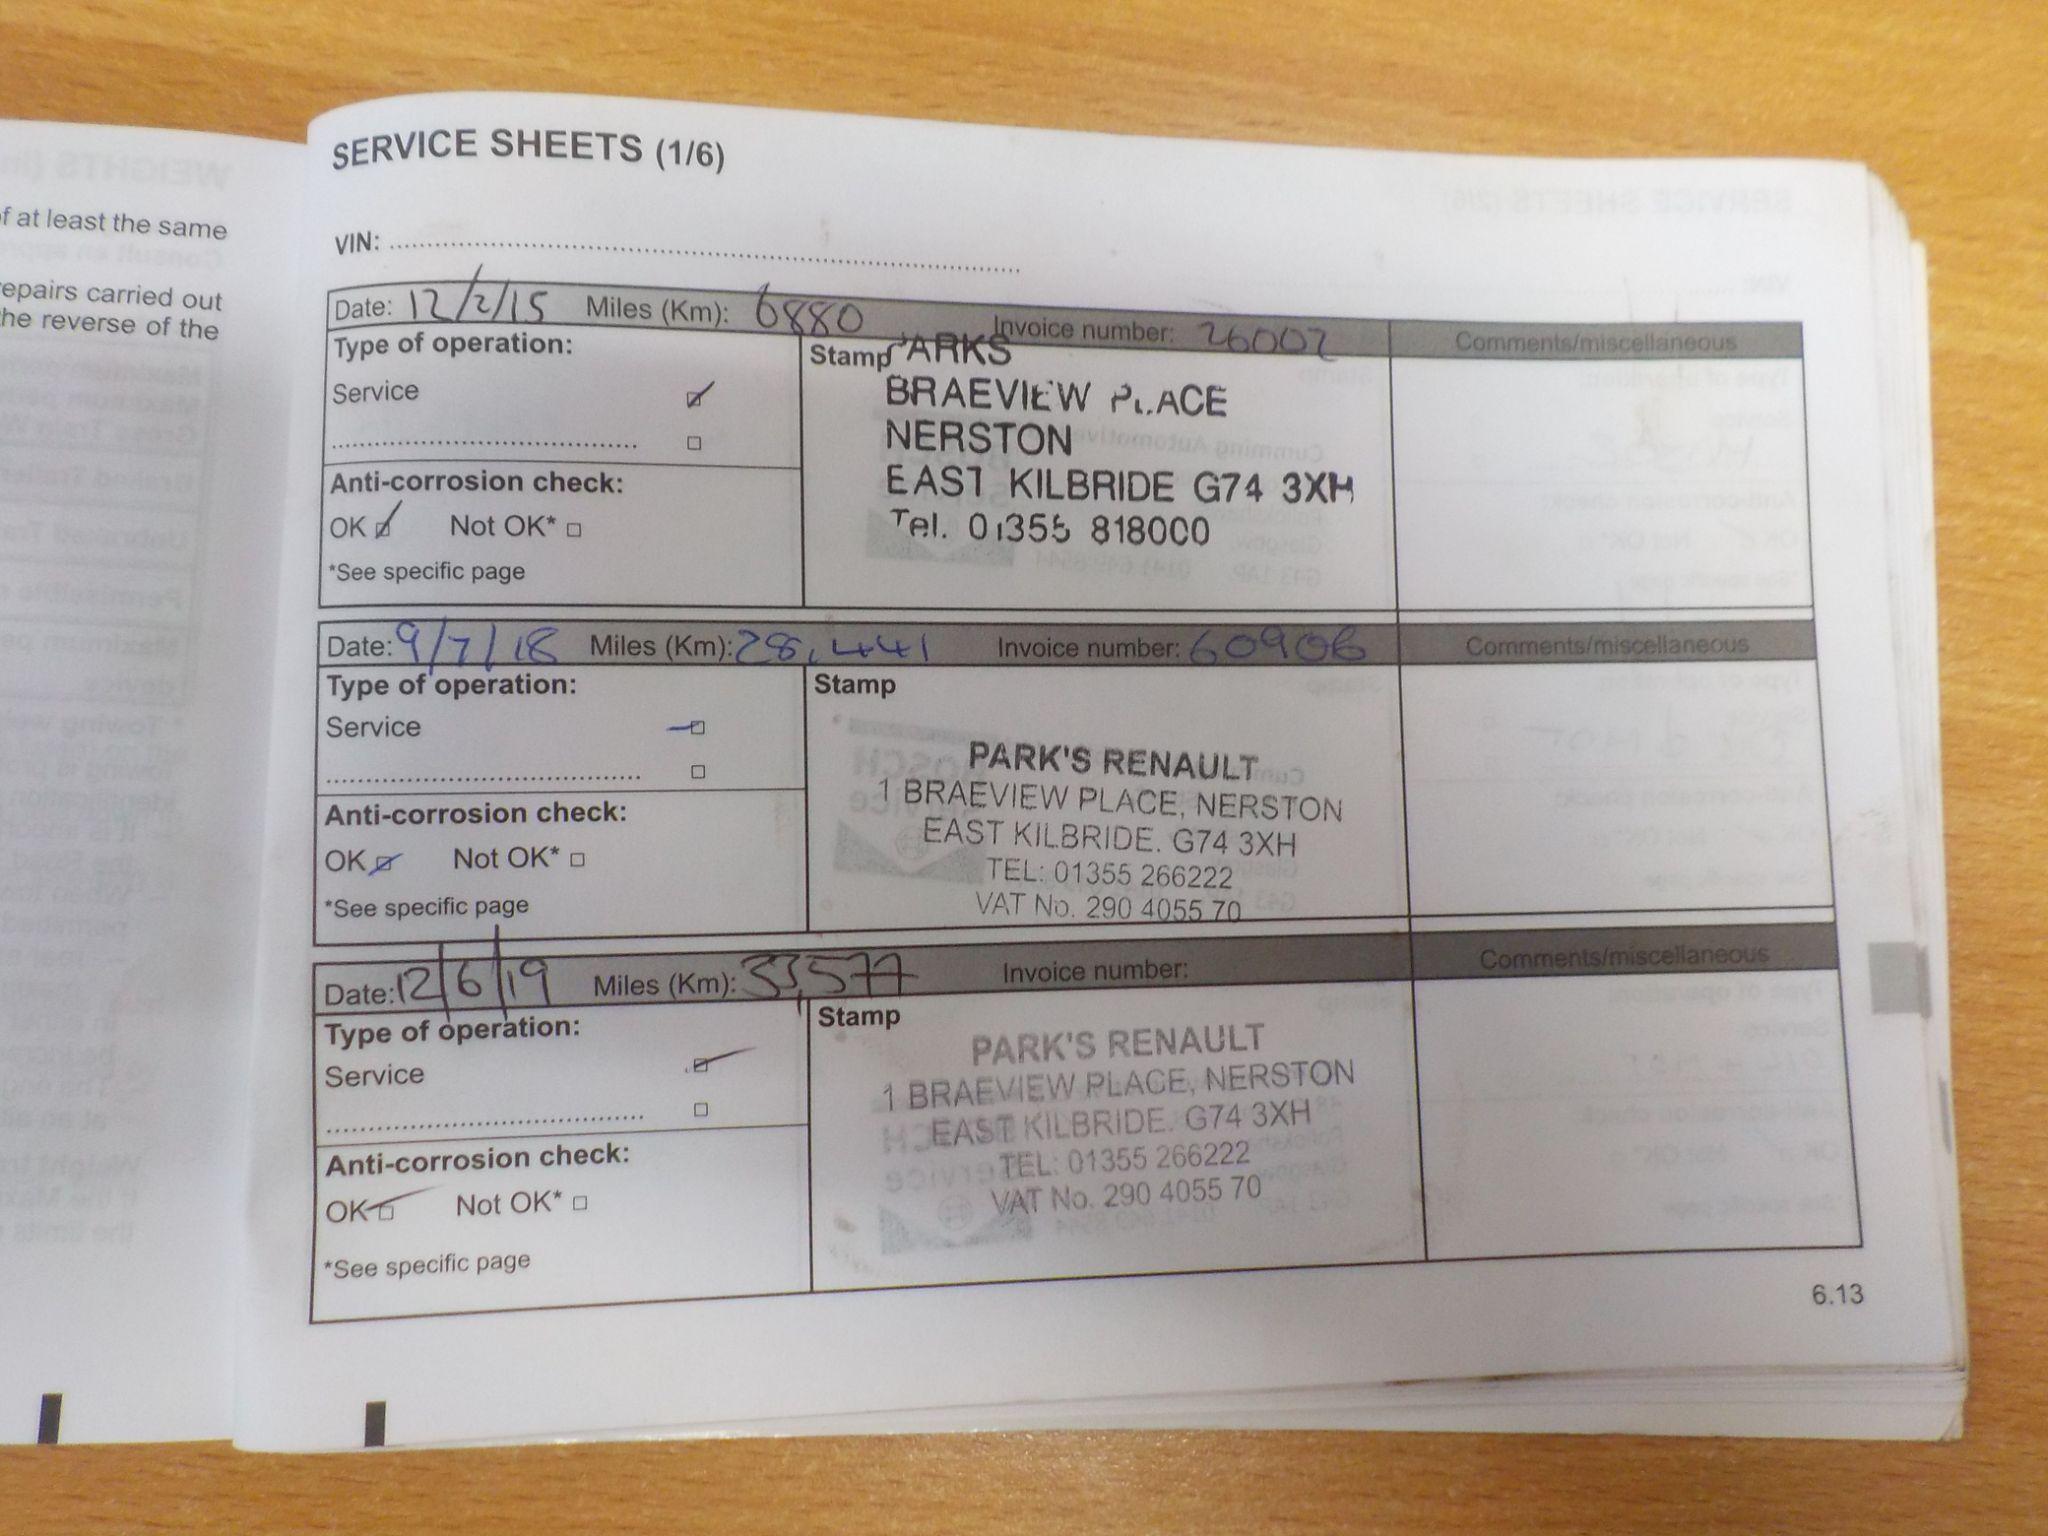 of at least the same
repairs carried out
the reverse of the
SERVICE SHEETS (1/6)
VIN:
Date: 12/2/15 Miles (Km): 6880 Invoice number: 26002 Comments/miscellaneous
Type of operation:
Service
Anti-corrosion check:
OK Not OK*
*See specific page
Stamp
PARKS
BRAEVIEW PLACE
NERSTON
EAST KILBRIDE G74 3XH
Tel. 01355 818000
Date: 9/7/18 Miles (Km): 28,441 Invoice number: 60906 Comments/miscellaneous
Type of operation:
Service
Anti-corrosion check:
OK Not OK*
*See specific page
Stamp
PARK'S RENAULT
1 BRAEVIEW PLACE, NERSTON
EAST KILBRIDE. G74 3XH
TEL: 01355 266222
VAT No. 290 4055 70
Date: 12/6/19 Miles (Km): 33,577 Invoice number: Comments/miscellaneous
Type of operation:
Service
Anti-corrosion check:
OK Not OK*
*See specific page
Stamp
PARK'S RENAULT
1 BRAEVIEW PLACE, NERSTON
EAST KILBRIDE. G74 3XH
TEL: 01355 266222
VAT No. 290 4055 70
6.13